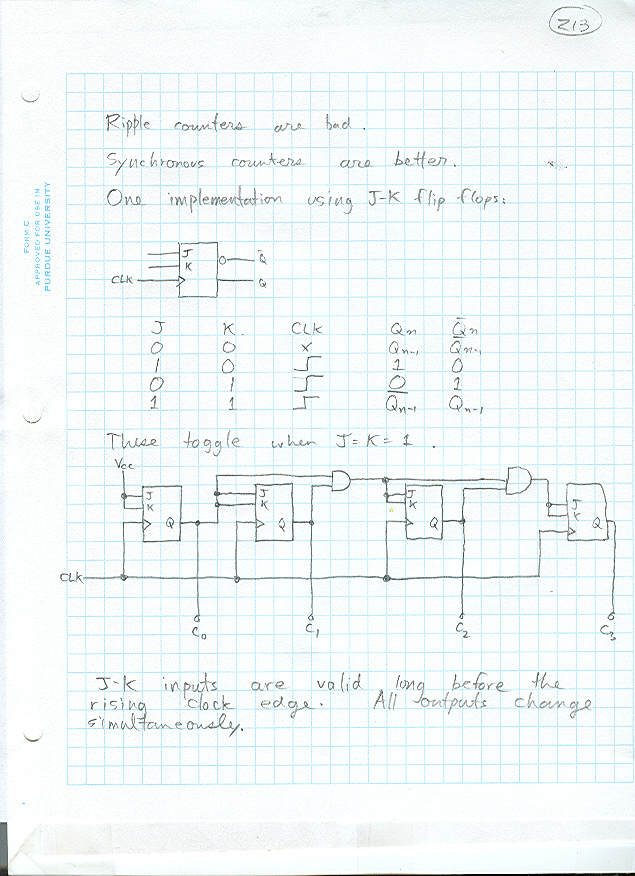 213
FORM C
APPROVED FOR USE IN
PURDUE UNIVERSITY
Ripple counters are bad.
Synchronous counters are better.
One implementation using J-K flip flops:
J
K
CLK
Q̅
Q
J K CLK Qn Q̅n
0 0 X Qn-1 Q̅n-1
1 0 1 0
0 1 0 1
1 1 Q̅n-1 Qn-1
These toggle when J=K=1.
Vcc
J K Q
J K Q
J K Q
J K Q
CLK
C0 C1 C2 C3
J-K inputs are valid long before the
rising clock edge. All outputs change
simultaneously.